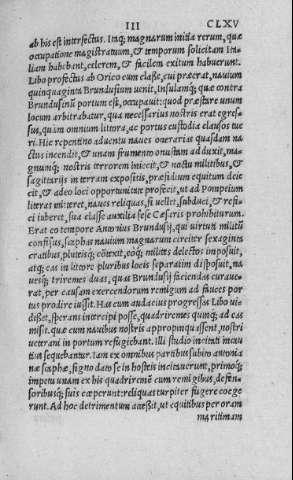 III CLXV
ab his est interfectus. Inq; magnarum initia rerum, quæ
occupatione magistratuum, & temporum solicitam Ita-
liam habebant, celerem, & facilem exitum habuerunt.
Libo profectus ab Orico cum classe, cui præerat, nauium
quinquaginta Brundusium uenit, Insulamq; quæ contra
Brundusinũ portum est, occupauit: quod præstare unum
locum arbitrabatur, qua necessarius nostris erat egres-
sus, quàm omnium litora, ac portus custodia clausos tue
ri. Hic repentino aduentu naues onerarias quasdam na
ctus incendit, & unam frumento onustam adduxit, ma-
gnumq; nostris terrorem iniecit, & noctu militibus, &
sagitarijs in terram expositis, præsidium equitum deie
cit, & adeo loci opportunitate profecit, ut ad Pompeium
literas mitteret, naues reliquas, si uellet, subduci, & refi-
ci iuberet, sua classe auxilia sese Cæsaris prohibiturum.
Erat eo tempore Antonius Brundusij, qui uirtuti militũ
confisus, scaphas nauium magnarum circiter sexaginta
cratibus, pluteisq; cõtexit, eoq; milites delectos imposuit,
atq; eas in litore pluribus locis separatim disposuit, na-
uesq; triremes duas, quas Brundusij faciendas curaue-
rat, per causam exercendorum remigum ad fauces por
tus prodire iussit. Has cum audacius progressas Libo ui-
disset, sperans intercipi posse, quadriremes quinq; ad eas
misit. quæ cum nauibus nostris appropinquassent, nostri
ueterani in portum refugiebant. Illi studio incitati incau
tius sequebantur. Iam ex omnibus partibus subito antonia
næ scaphæ, signo dato se in hostes incitauerunt, primoq;
impetu unam ex his quadriremẽ cum remigibus, defen-
soribusq; suis cœperunt: reliquas turpiter fugere coege
runt. Ad hoc detrimentum accessit, ut equitibus per oram
maritimam